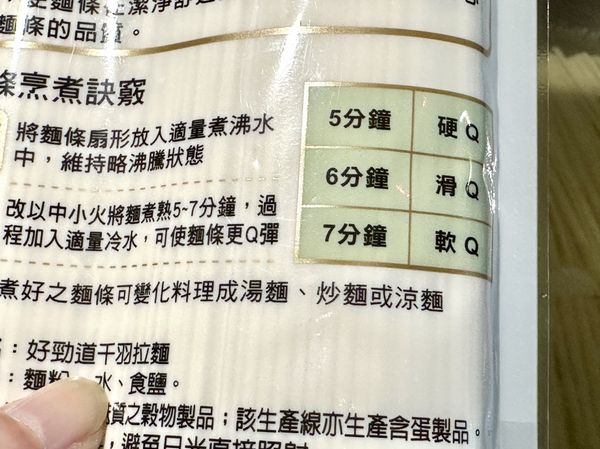 麵條在潔淨舒適
麵條的品質。
條烹煮訣竅
將麵條扇形放入適量煮沸水
中，維持略沸騰狀態
改以中小火將麵煮熟5~7分鐘，過
程加入適量冷水，可使麵條更Q彈
5分鐘 硬Q
6分鐘 滑Q
7分鐘 軟Q
煮好之麵條可變化料理成湯麵、炒麵或涼麵
：好勁道千羽拉麵
：麵粉、水、食鹽。
質之穀物製品；該生產線亦生產含蛋製品。
，避免日光直接照射